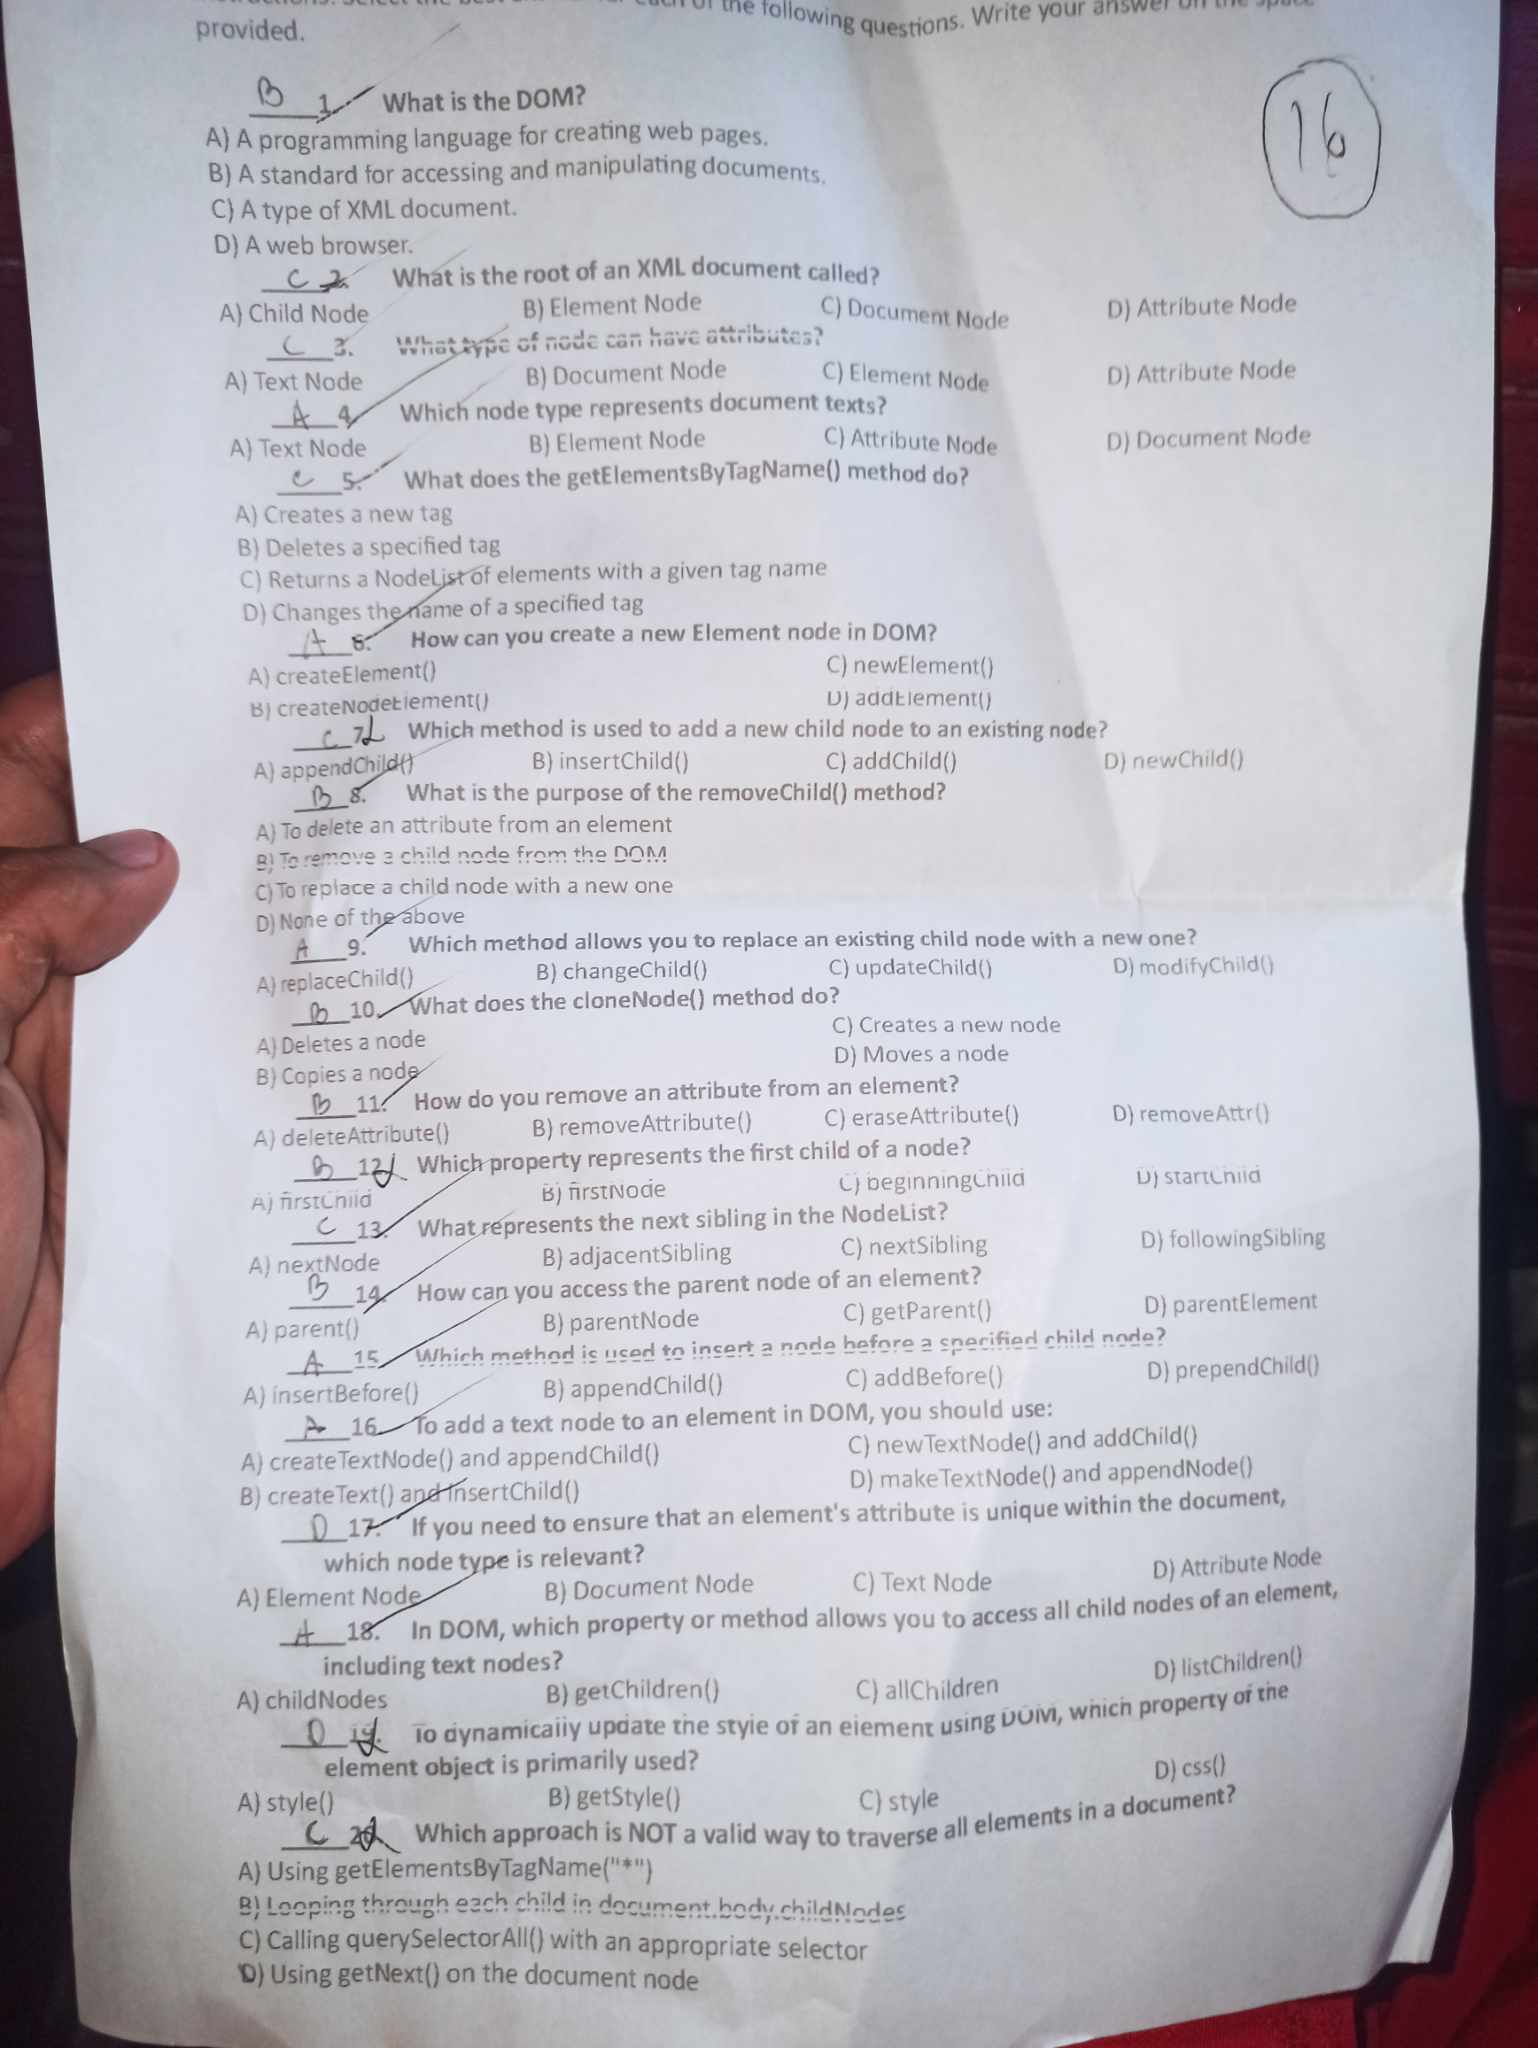 the following questions. Write your answer on the space
provided.
16
B 1. What is the DOM?
A) A programming language for creating web pages.
B) A standard for accessing and manipulating documents.
C) A type of XML document.
D) A web browser.
C 2. What is the root of an XML document called?
A) Child Node B) Element Node C) Document Node D) Attribute Node
C 3. What type of node can have attributes?
A) Text Node B) Document Node C) Element Node D) Attribute Node
A 4. Which node type represents document texts?
A) Text Node B) Element Node C) Attribute Node D) Document Node
C 5. What does the getElementsByTagName() method do?
A) Creates a new tag
B) Deletes a specified tag
C) Returns a NodeList of elements with a given tag name
D) Changes the name of a specified tag
A 6. How can you create a new Element node in DOM?
A) createElement() C) newElement()
B) createNodeElement() D) addElement()
C 7. Which method is used to add a new child node to an existing node?
A) appendChild() B) insertChild() C) addChild() D) newChild()
B 8. What is the purpose of the removeChild() method?
A) To delete an attribute from an element
B) To remove a child node from the DOM
C) To replace a child node with a new one
D) None of the above
A 9. Which method allows you to replace an existing child node with a new one?
A) replaceChild() B) changeChild() C) updateChild() D) modifyChild()
B 10. What does the cloneNode() method do?
A) Deletes a node C) Creates a new node
B) Copies a node D) Moves a node
B 11. How do you remove an attribute from an element?
A) deleteAttribute() B) removeAttribute() C) eraseAttribute() D) removeAttr()
B 12. Which property represents the first child of a node?
A) firstChild B) firstNode C) beginningChild D) startChild
C 13. What represents the next sibling in the NodeList?
A) nextNode B) adjacentSibling C) nextSibling D) followingSibling
B 14. How can you access the parent node of an element?
A) parent() B) parentNode C) getParent() D) parentElement
A 15. Which method is used to insert a node before a specified child node?
A) insertBefore() B) appendChild() C) addBefore() D) prependChild()
A 16. To add a text node to an element in DOM, you should use:
A) createTextNode() and appendChild() C) newTextNode() and addChild()
B) createText() and insertChild() D) makeTextNode() and appendNode()
D 17. If you need to ensure that an element's attribute is unique within the document,
which node type is relevant?
A) Element Node B) Document Node C) Text Node D) Attribute Node
A 18. In DOM, which property or method allows you to access all child nodes of an element,
including text nodes?
A) childNodes B) getChildren() C) allChildren D) listChildren()
D 19. To dynamically update the style of an element using DOM, which property of the
element object is primarily used?
A) style() B) getStyle() C) style D) css()
C 20. Which approach is NOT a valid way to traverse all elements in a document?
A) Using getElementsByTagName("*")
B) Looping through each child in document.body.childNodes
C) Calling querySelectorAll() with an appropriate selector
D) Using getNext() on the document node